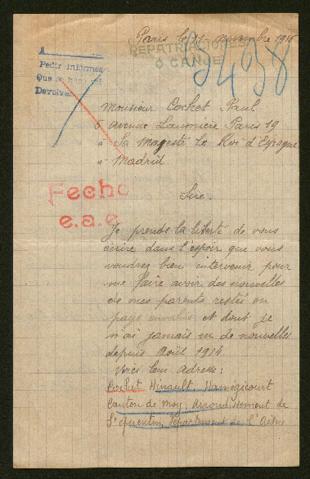 Paris le 1 novembre 1915
REPATRIACIONES
O CANJE
A
Pedir informes
Que se
Devolver
Monsieur Cochet Paul
6 avenue Laumière Paris 19
à Sa Majesté le Roi d'Espagne
à Madrid
Fecho
e.a.e
Sire.
Je prends la liberté de vous
écrire dans l'espoir que vous
voudrez bien intervenir pour
me faire avoir des nouvelles
de mes parents restés en
pays envahis et dont je
n'ai jamais eu de nouvelles
depuis Août 1914
Voici leur adresse:
Cochet Hinault Hamégicourt
Canton de Moy, Arrondissement de
St Quentin, Département de l'Aisne